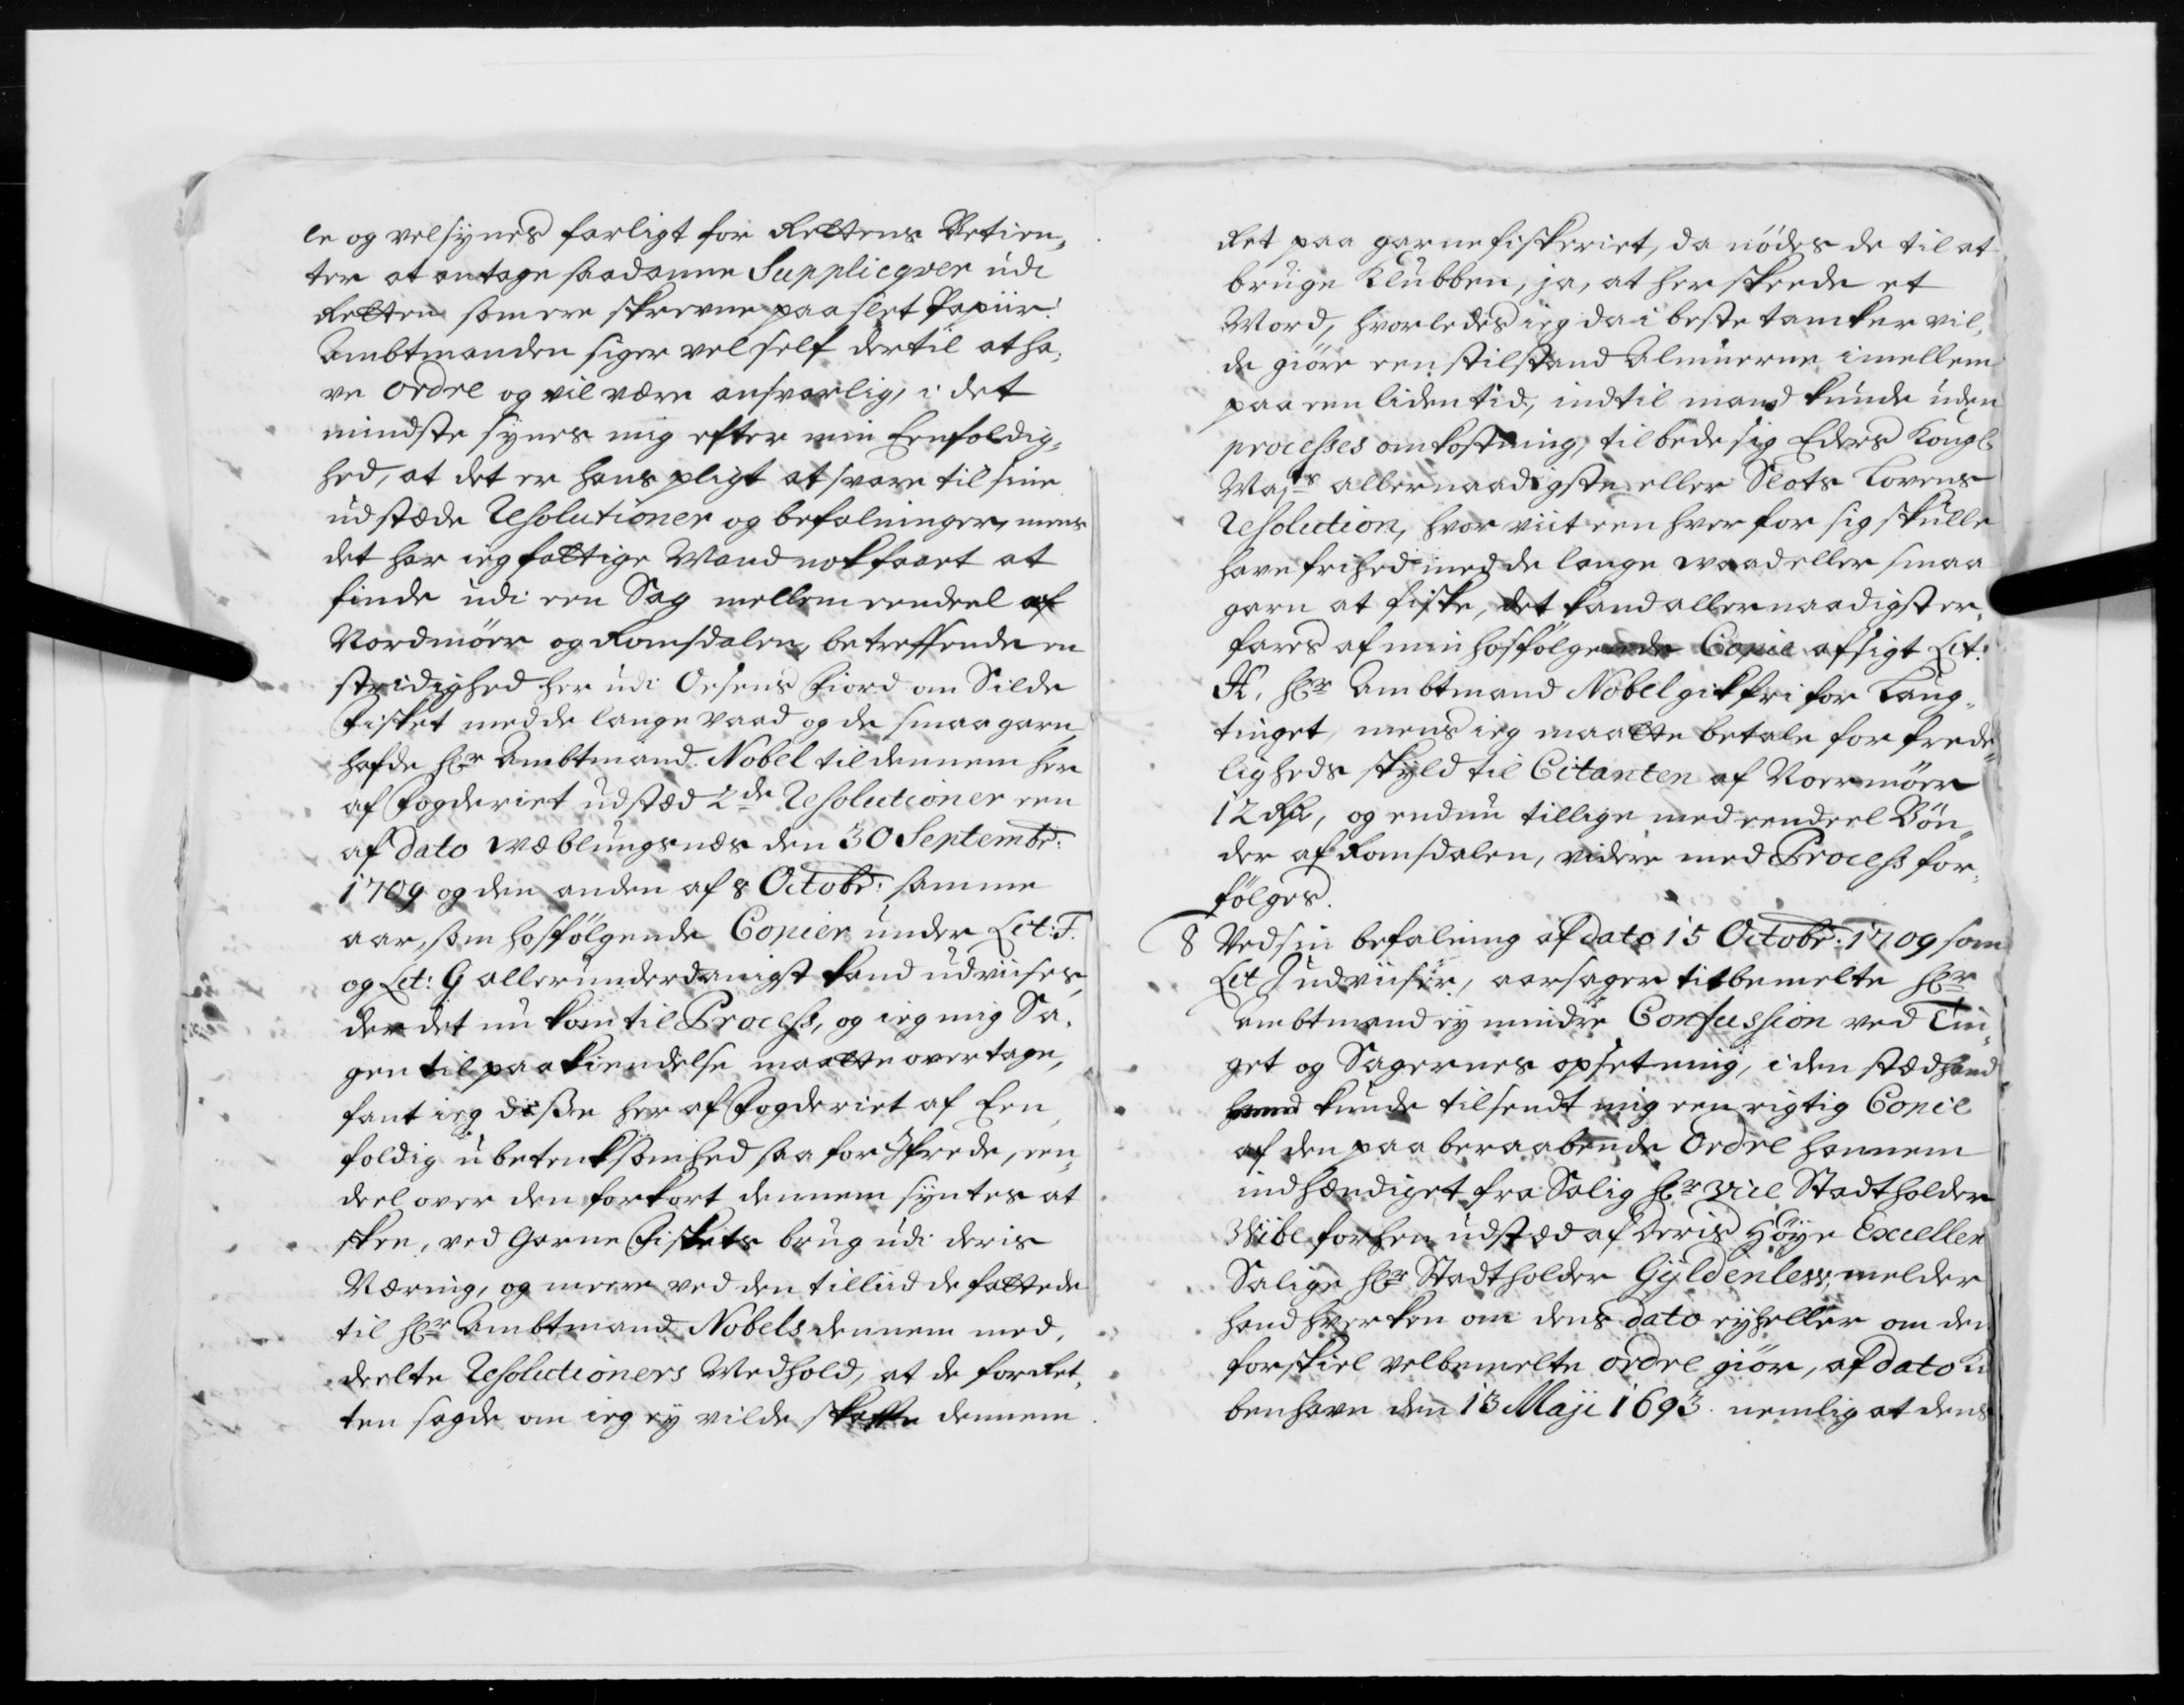 le og vel synes farligt for Rettens Betien,
ter at antage saadanne Supplicqver udi
Retten som ere skrevne paa slet Papiir!
Ambtmanden siger vel self dertil at ha,
ve ordre og vil være ansvarlig, i det
mindste synes mig efter min Eenfoldig,
hed, at det er hans pligt at svare til sine
udstæde Resolutioner og befalninger, mens
det har ieg fattige Mand nok faaet at
finde udi een Sag mellem eendeel af
Nordmöer og Romsdalen, betreffende en
stridighed her udi Oesens Fiord om Silde
Fisket med de lange vaad og de smaa garn,
hafde Hr Ambtmand Nobel til dennem her
af Fogderiet udstæd 2de Resolutioner een
af dato Wæblungsnæs den 30 Septembr:
1709 og den anden af 8 Octobr: samme
aar, som hosfölgende Copier under Lit: F.
og Lit: G allerunderdanigst kand udviises,
der det nu kom til Process, og ieg mig Sa,
gen til paakiendelse maatte overtage,
fant ieg disse her af Fogderiet af Een,
foldig ubetenksomhed saa for Ifrede, een,
deel over den forkort dennem syntes at
skee, ved Garne Fiskets brug udi deris
Næring, og meere ved den tilliid de fattede
til Hr Ambtmand Nobels dennem med,
deelte Resolutioners Medhold, at de for Ret,
ten sagde om ieg ey vilde skaffe dennem
Ret paa garnefiskeriet, da nödes de til at
bruge Klubben, ja, at her skeede et
Mord, hvorledes ieg da i beste tanker vil,
de giöre een stilstand Almuerne imellem
paa een liden tid, indtil mand kunde uden
processes omkostning, tilbede sig Eders Kongl
Majts allernaadigste eller Slots Lovens
Resolution, hvor viit een hver for sig skulle
have frihed med de lange waad eller smaa
garn at fiske, det kand allernaadigst er,
fares af min hosfölgende Copie afsigt Lit:
H, Hr Ambtmand Nobel gik fri for Laug,
tinget, mens ieg maatte betale for frede,
ligheds skyld til Citanten af Noermöer
12 Rdr, og endnu tillige med eendeel Bön,
der af Romsdalen, videre med Process for,
fölges.
8 Ved sin befalning af dato 15 Octobr: 1709 som
Lit I udviiser, aarsager titbemelte Hr
Ambtmand ey mindre Confussion ved Tin,
get og Sagernes opsetning, i den stæd hand
kunde tilsendt mig een rigtig Copie
af den paaberaabende Ordre hannem
indhændiget fra Salig Hr Vice Stadtholder
Wibe forhen udstæd af Deris Höye Excellen
Salige Hr Stadtholder Gyldenlew, melder
hand hverken om dens dato ey heller om den
forskiel velbemelte ordre giör, af dato Ki
benhavn den 13 Maji 1693. nemlig at dens